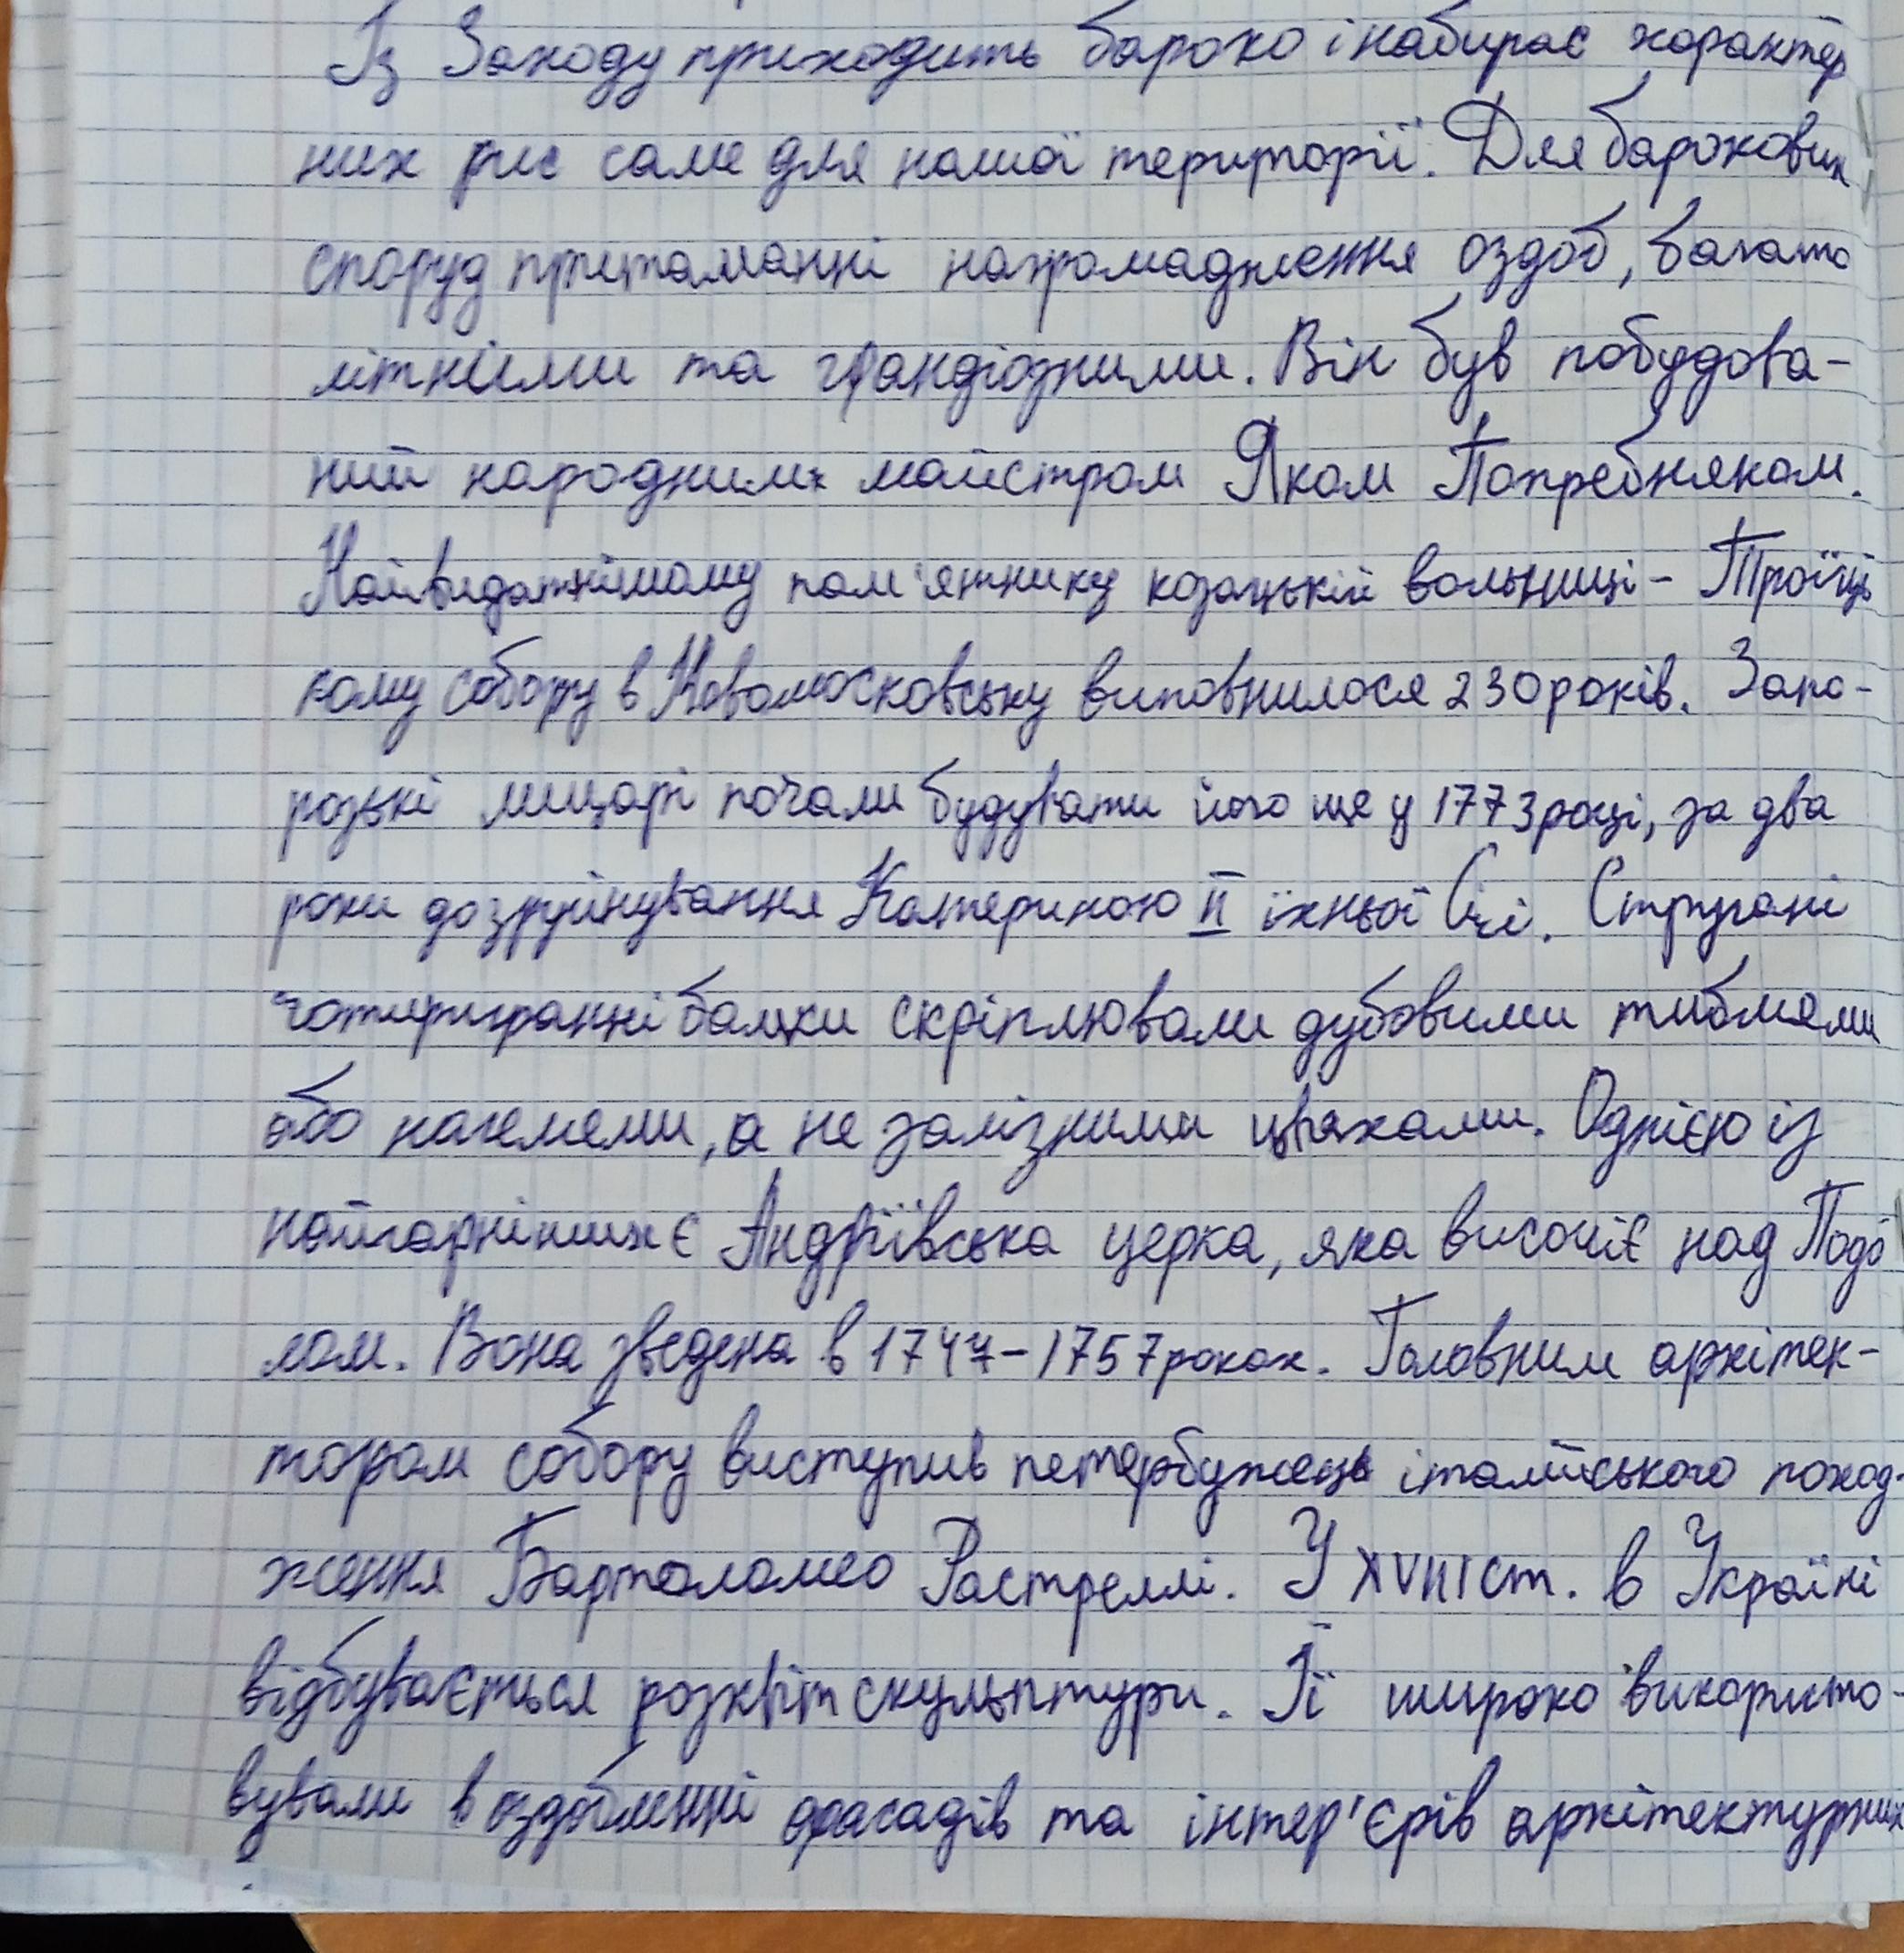 Із Заходу приходить бароко і набирає характер
них рис саме для нашої території. Для барокових
споруд притаманні нагромадження оздоб, багато
літніми та грандіозними. Він був побудова-
ний народним майстром Яком Погребняком.
Найвидатнішому пам'ятнику козацькій вольниці - Троїць
кому собору в Новомосковську виповнилося 230 років. Запо-
розькі лицарі почали будувати його ще у 1773 році, за два
роки до зруйнування Катериною II їхньої Січі. Стругані
чотиригранні балки скріплювали дубовими тиблями
або нагелями, а не залізними цвяхами. Однією із
найгарніших є Андріївська церка, яка височіє над Подо
лом. Вона зведена в 1747-1757 роках. Головним архітек-
тором собору виступив петербужець італійського поход-
ження Бартоломео Растреллі. У XVIII ст. в Україні
відбувається розквіт скульптури. Її широко використо-
вували в оздобленні фасадів та інтер'єрів архітектурних